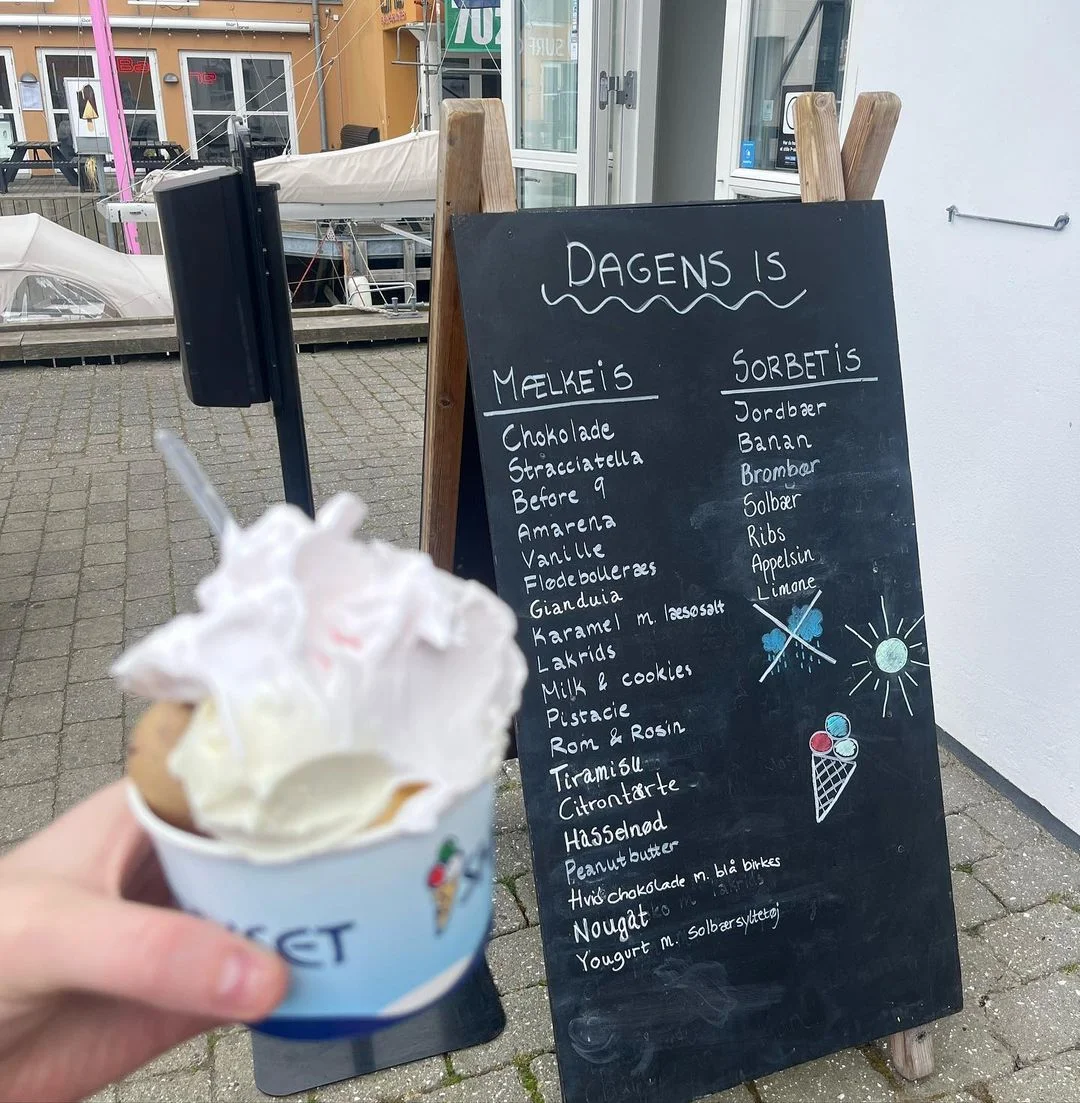 DAGENS IS
MÆLKEIS
Chokolade
Stracciatella
Before 9
Amarena
Vanille
Flødebolleræs
Gianduia
Karamel m. læsøsalt
Lakrids
Milk & cookies
Pistacie
Rom & Rosin
Tiramisu
Citrontærte
Hasselnød
Peanutbutter
Hvis chokolade m. blå birkes
Nougat
Yougurt m. Solbærsyltetøj
SORBETIS
Jordbær
Banan
Brombær
Solbær
Ribs
Appelsin
Limone
SURF